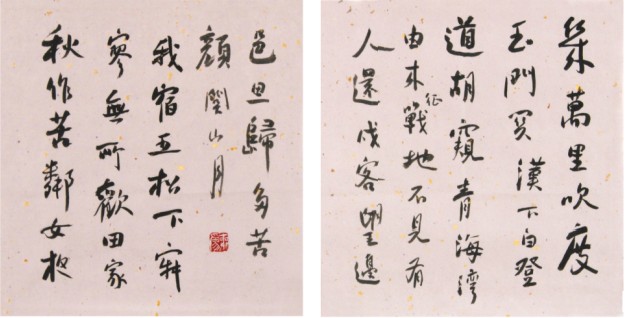 幾萬里吹度
玉門関漢下白登
道胡窺青海灣
由来征戰地不見有
人還戍客望邊
邑思歸多苦
顏關山月
我宿五松下寂
寥無所歡田家
秋作苦鄰女夜